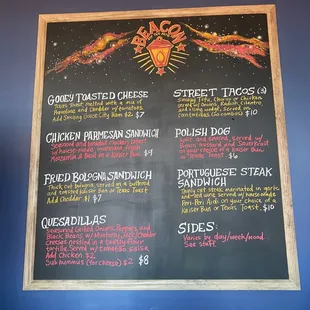 BEACON
GOOEY TOASTED CHEESE
Texas Toast, melted with a mix of
Provolone and Cheddar w/tomatoes
Add Smoking Goose City Ham $2 $7
CHICKEN PARMESAN SANDWICH
Seasoned and breaded chicken breast
w/house-made marinara, fresh
Mozzarella & Basil on a Kaiser Bun $9
FRIED BOLOGNA SANDWICH
Thick cut bologna, served on a buttered
and toasted Kaiser Bun or Texas Toast
Add Cheddar $1 $7
QUESADILLAS
Seasoned Grilled Onions, Peppers, and
Black Beans w/Monterey Jack/Cheddar
Cheeses nestled in a toasty flour
tortilla. Served w/tomatillo salsa
Add Chicken $2
Sub hummus (for cheese) $2 $8
STREET TACOS (3)
Smoky Tofu, Chorizo or Chicken
Onions, Radish, Cilantro
and lime wedge, Served on
corn tortillas (no combos) $10
POLISH DOG
Split and seared, served w/
Onions, Mustard and Sauerkraut
on your choice of a Kaiser Bun
or Texas Toast $6
PORTUGUESE STEAK
SANDWICH
steak, marinated in garlic
and red wine served w/house-made
Peri-Peri Aioli on your choice of a
Kaiser Bun or Texas Toast. $10
SIDES:
Varies by day/week/mood
See staff